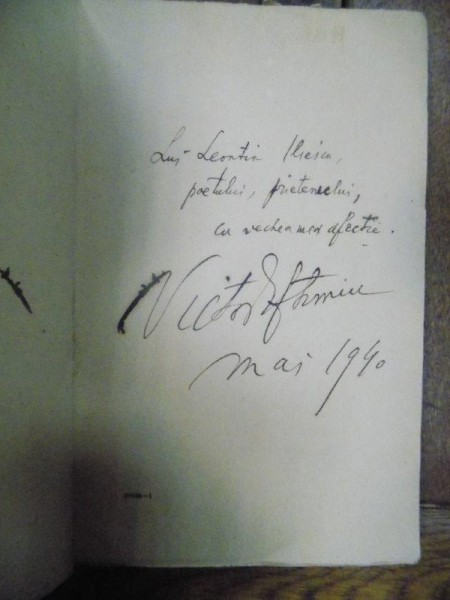 Lui Leontin Iliescu,
poetului, prietenului,
cu vechea mea afecție.
Victor Eftimiu
mai 1940